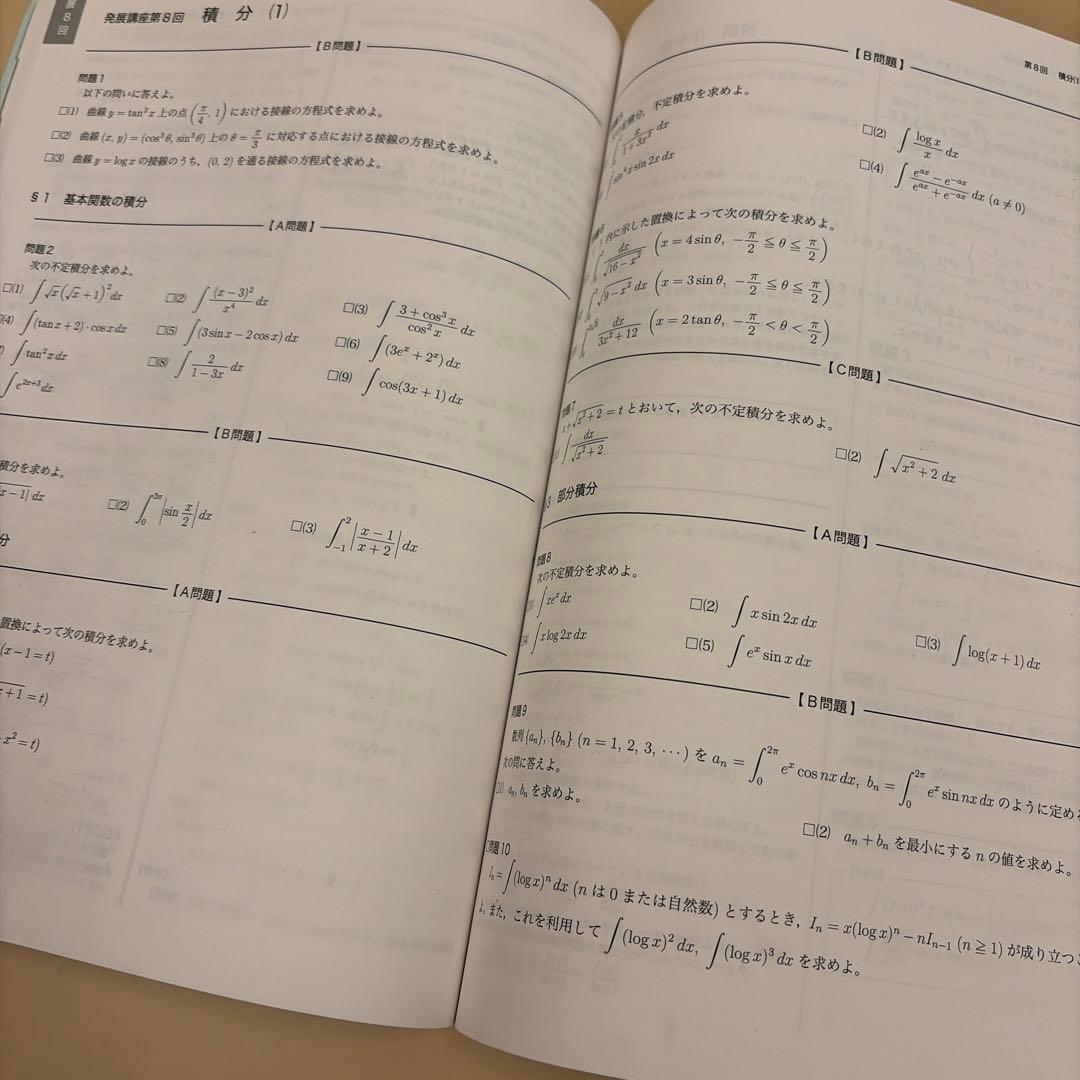 展8回
発展講座第8回 積 分 (1)
【B問題】
問題1
以下の問いに答えよ。
□(1) 曲線 y = tan²x 上の点 (π/4, 1) における接線の方程式を求めよ。
□(2) 曲線 (x, y) = (cos³θ, sin³θ) 上の θ = π/3 に対応する点における接線の方程式を求めよ。
□(3) 曲線 y = log x の接線のうち, (0, 2) を通る接線の方程式を求めよ。
§1 基本関数の積分
【A問題】
問題2
次の不定積分を求めよ。
□(1) ∫√x(√x+1)²dx □(2) ∫(x−3)²/x⁴ dx □(3) ∫(3+cos³x)/cos²x dx
(4) ∫(tan x+2)·cos x dx □(5) ∫(3sin x−2cos x)dx □(6) ∫(3eˣ+2ˣ)dx
∫tan²x dx □(8) ∫2/(1−3x) dx □(9) ∫cos(3x+1)dx
∫e²ˣ⁺³dx
【B問題】
積分を求めよ。
x−1| dx □(2) ∫₀^{3π}|sin x/2|dx □(3) ∫₋₁²|(x−1)/(x+2)|dx
分
【A問題】
置換によって次の積分を求めよ。
(x−1=t)
x+1=t)
x²=t)
第8回 積分(1
【B問題】
不定積分を求めよ。
x/(1+3x²) dx □(2) ∫(log x)/x dx
∫sin⁴x sin 2x dx □(4) ∫(e^{ax}−e^{−ax})/(e^{ax}+e^{−ax}) dx (a≠0)
内に示した置換によって次の積分を求めよ。
dx/√(16−x²) (x=4sinθ, −π/2≦θ≦π/2)
√(9−x²) dx (x=3sinθ, −π/2≦θ≦π/2)
dx/(3x²+12) (x=2tanθ, −π/2<θ<π/2)
【C問題】
問題7
x+√(x²+2)=t とおいて, 次の不定積分を求めよ。
∫dx/√(x²+2) □(2) ∫√(x²+2) dx
3 部分積分
【A問題】
問題8
次の不定積分を求めよ。
∫xeˣdx □(2) ∫x sin 2x dx □(3) ∫log(x+1)dx
∫x log 2x dx □(5) ∫eˣ sin x dx
【B問題】
問題9
数列{aₙ}, {bₙ} (n=1, 2, 3, ⋯) を aₙ=∫₀^{2π} eˣ cos nx dx, bₙ=∫₀^{2π} eˣ sin nx dx のように定める
次の問に答えよ。
□(1) aₙ, bₙ を求めよ。 □(2) aₙ+bₙ を最小にする n の値を求めよ。
問題10
Iₙ=∫(log x)ⁿ dx (n は 0 または自然数) とするとき, Iₙ=x(log x)ⁿ−nIₙ₋₁ (n≧1) が成り立つこ
よ。また, これを利用して ∫(log x)² dx, ∫(log x)³ dx を求めよ。